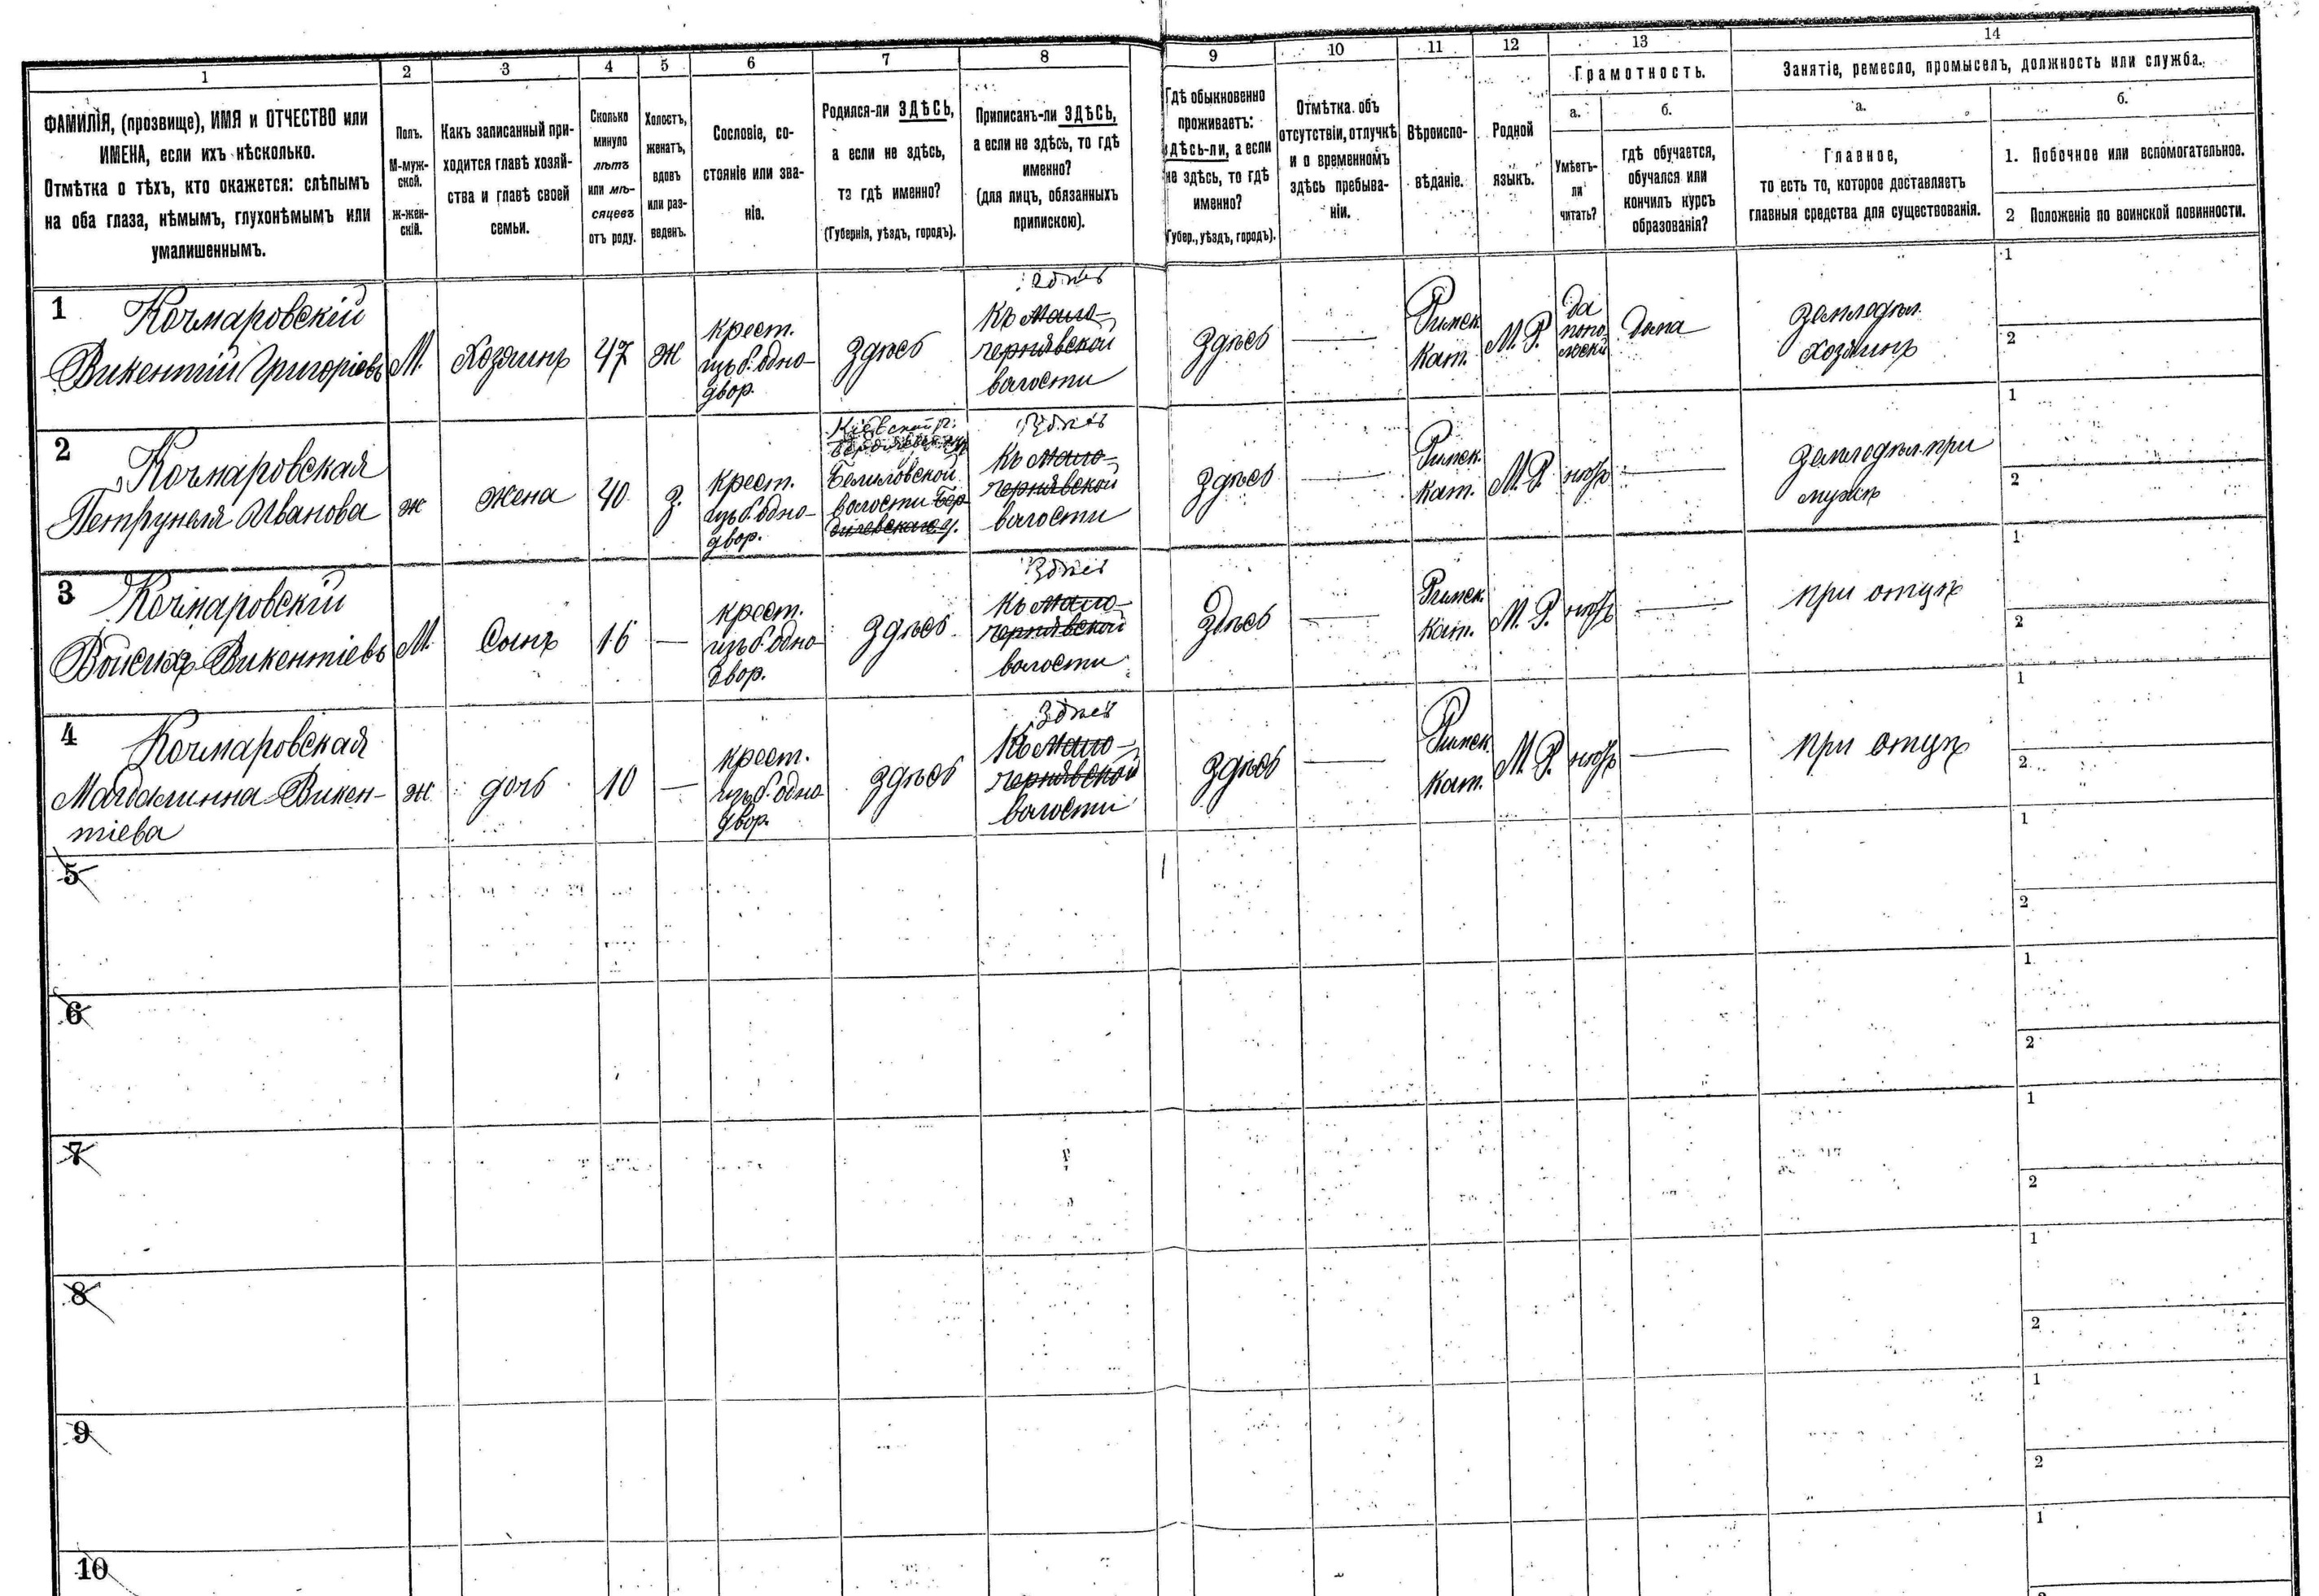 1 2 3 4 5 6 7 8 9 10 11 12 13 14
ФАМИЛІЯ, (прозвище), ИМЯ и ОТЧЕСТВО или
ИМЕНА, если ихъ нѣсколько.
Отмѣтка о тѣхъ, кто окажется: слѣпымъ
на оба глаза, нѣмымъ, глухонѣмымъ или
умалишеннымъ.
Полъ.
М-муж-
ской.
ж-жен-
скій.
Какъ записанный при-
ходится главѣ хозяй-
ства и главѣ своей
семьи.
Сколько
минуло
лѣтъ
или мѣ-
сяцевъ
отъ роду.
Холостъ,
женатъ,
вдовъ
или раз-
веденъ.
Сословіе, со-
стояніе или зва-
ніе.
Родился-ли ЗДѢСЬ,
а если не здѣсь,
то гдѣ именно?
(Губернія, уѣздъ, городъ).
Приписанъ-ли ЗДѢСЬ,
а если не здѣсь, то гдѣ
именно?
(для лицъ, обязанныхъ
припискою).
Гдѣ обыкновенно
проживаетъ:
здѣсь-ли, а если
не здѣсь, то гдѣ
именно?
(Губер., уѣздъ, городъ).
Отмѣтка объ
отсутствіи, отлучкѣ
и о временномъ
здѣсь пребыва-
ніи.
Вѣроиспо-
вѣданіе.
Родной
языкъ.
Грамотность.
а.
Умѣетъ-
ли
читать?
б.
гдѣ обучается,
обучался или
кончилъ курсъ
образованія?
Занятіе, ремесло, промыселъ, должность или служба.
а.
Главное,
то есть то, которое доставляетъ
главныя средства для существованія.
б.
1. Побочное или вспомогательное.
2 Положеніе по воинской повинности.
1
Кочмаровскій
Викентій Григоріевъ
М.
Хозяинъ
47
ж
крест.
изъ б. одно-
двор.
здѣсь
здѣсь
Къ Мало-
чернявской
волости
здѣсь
Римск.
Кат.
М. Р.
Да
дома
земледѣл.
хозяинъ
1
2
2
Кочмаровская
Петрунеля Иванова
ж
жена
40
з.
крест.
изъ б. одно-
двор.
Кіевской г.
Бердичевск. у.
Бѣлиловской
волости Бер-
дичевскаго у.
Здѣсь
Къ Мало-
чернявской
волости
здѣсь
Римск.
кат.
М. Р.
нѣтъ
земледѣл. при
мужѣ
1
2
3
Кочмаровскій
Войцехъ Викентіевъ
М.
Сынъ
16
крест.
изъ б. одно-
двор.
здѣсь
Здѣсь
Къ Мало-
чернявской
волости
Здѣсь
Римск.
Кат.
М. Р.
нѣтъ
при отцѣ
1
2
4
Кочмаровская
Магдалинна Викен-
тіева
ж
дочь
10
крест.
изъ б. одно-
двор.
здѣсь
Здѣсь
Къ Мало-
чернявской
волости
здѣсь
Римск.
Кат.
М. Р.
нѣтъ
при отцѣ
1
2
5
1
2
6
1
2
7
1
2
8
1
2
9
1
2
10
1